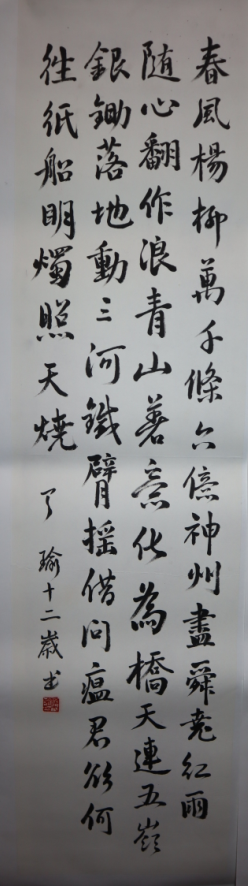 春風楊柳萬千條六億神州盡舜堯紅雨
随心翻作浪青山著意化為橋天連五嶺
銀鋤落地動三河鐵臂揺借問瘟君欲何
往紙船明燭照天燒
瑜十二歲书